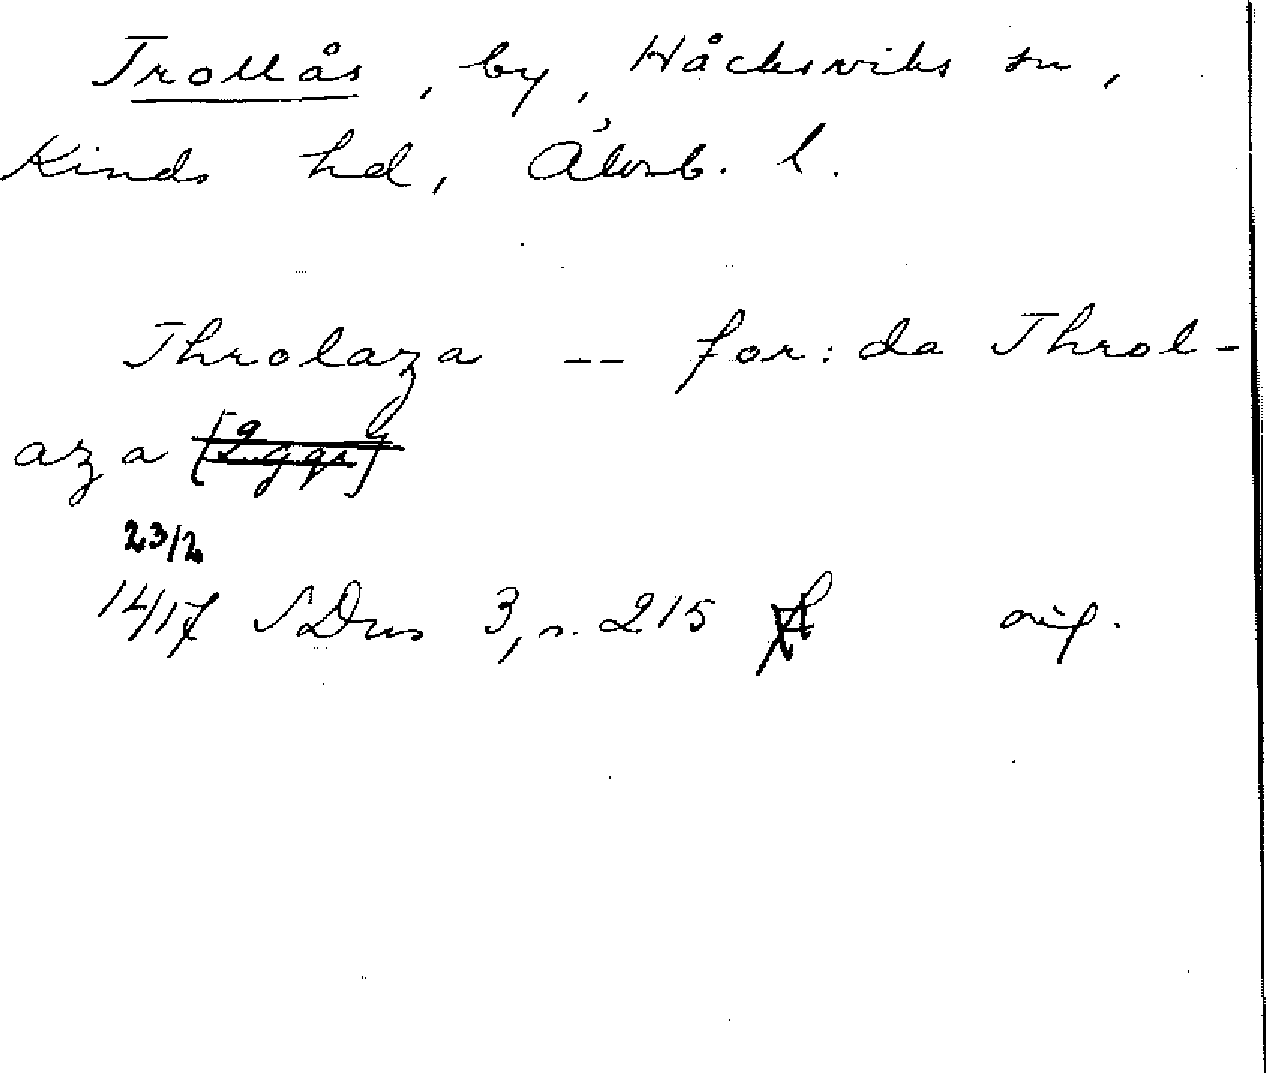 Trollås, by, Håcksviks sn,
Kinds hd, Älvsb. l.
Throlaza -- for: da Throl-
aza
23/2
1417 SDns 3, s. 215 orig.